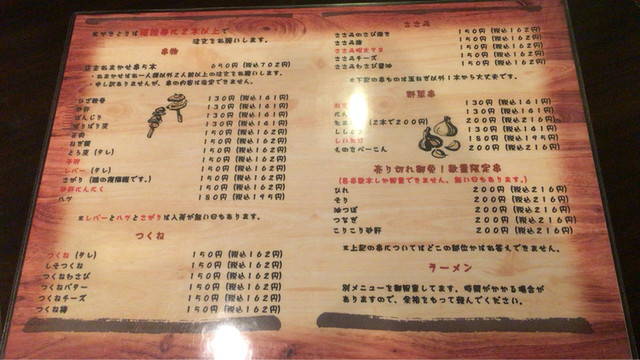 串物
注文をお願いします。
はさおまかせ串5本 650円(税込702円)
・おまかせはお一人様以外2人前以上の注文をお願いします。
・申し訳ありませんが、串の内容は指定できません。
ひざ軟骨 130円(税込141円)
砂肝 130円(税込141円)
ぼんじり 130円(税込141円)
150円(税込162円)
150円(税込162円)
150円(税込162円)
とり皮(タレ) 150円(税込162円)
150円(税込162円)
レバー(タレ) 150円(税込162円)
さがり(豚の横隔膜です。) 150円(税込162円)
砂肝にんにく 150円(税込162円)
ハツ 180円(税込195円)
※レバーとハツとさがりは入荷が無い日もあります。
つくね
つくね(タレ) 150円(税込162円)
しそつくね 150円(税込162円)
つくねわさび 150円(税込162円)
つくねバター 150円(税込162円)
つくねチーズ 150円(税込162円)
つくね 150円(税込162円)
ささみ
ささみのさび焼き 150円(税込162円)
ささみ 150円(税込162円)
ささみ明太マヨ 150円(税込162円)
ささみチーズ 150円(税込162円)
ささみわさび醤油 150円(税込162円)
※下記の串ものは玉ねぎ以外1本から大丈夫です。
130円(税込141円)
130円(税込141円)
(2本で200円) 200円(税込216円)
ししとう 130円(税込141円)
しいたけ 180円(税込195円)
ものきべーこん 200円(税込216円)
売り切れ御免!数量限定串
(各串数本しか御用意できません。無い日もあります。)
ひれ 200円(税込216円)
そり 200円(税込216円)
油つぼ 200円(税込216円)
つなぎ 200円(税込216円)
こりこり砂肝 200円(税込216円)
※上記の串についてはどこの部位かはお答えできません。
ラーメン
別メニューを御用意してます。時間がかかる場合が
ありますので、余裕をもって頼んでください。